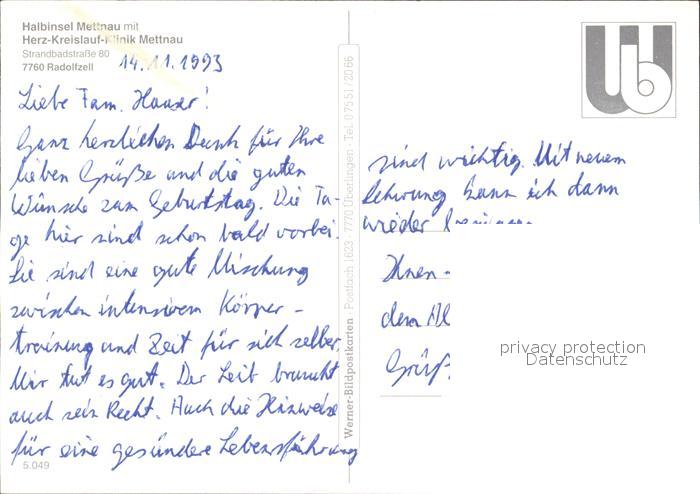 Halbinsel Mettnau mit
Herz-Kreislauf-Klinik Mettnau
Strandbadstraße 80
7760 Radolfzell
14.11.1993
Liebe Fam. Hauser!
Ganz herzlichen Dank für Ihre
lieben Grüße und die guten
Wünsche zum Geburtstag. Die Ta-
ge hier sind schon bald vorbei.
Sie sind eine gute Mischung
zwischen intensivem Körper-
training und Zeit für sich selber.
Mir tut es gut. Der Leib braucht
auch sein Recht. Auch die Hinweise
für eine gesündere Lebensführung
5.049
Werner-Bildpostkarten · Postfach 1623 · 7770 Überlingen · Tel. 0 75 51 / 20 66
sind wichtig. Mit neuem
kann ich dann
wieder
Ihnen
dem Al
Grüß
privacy protection
Datenschutz